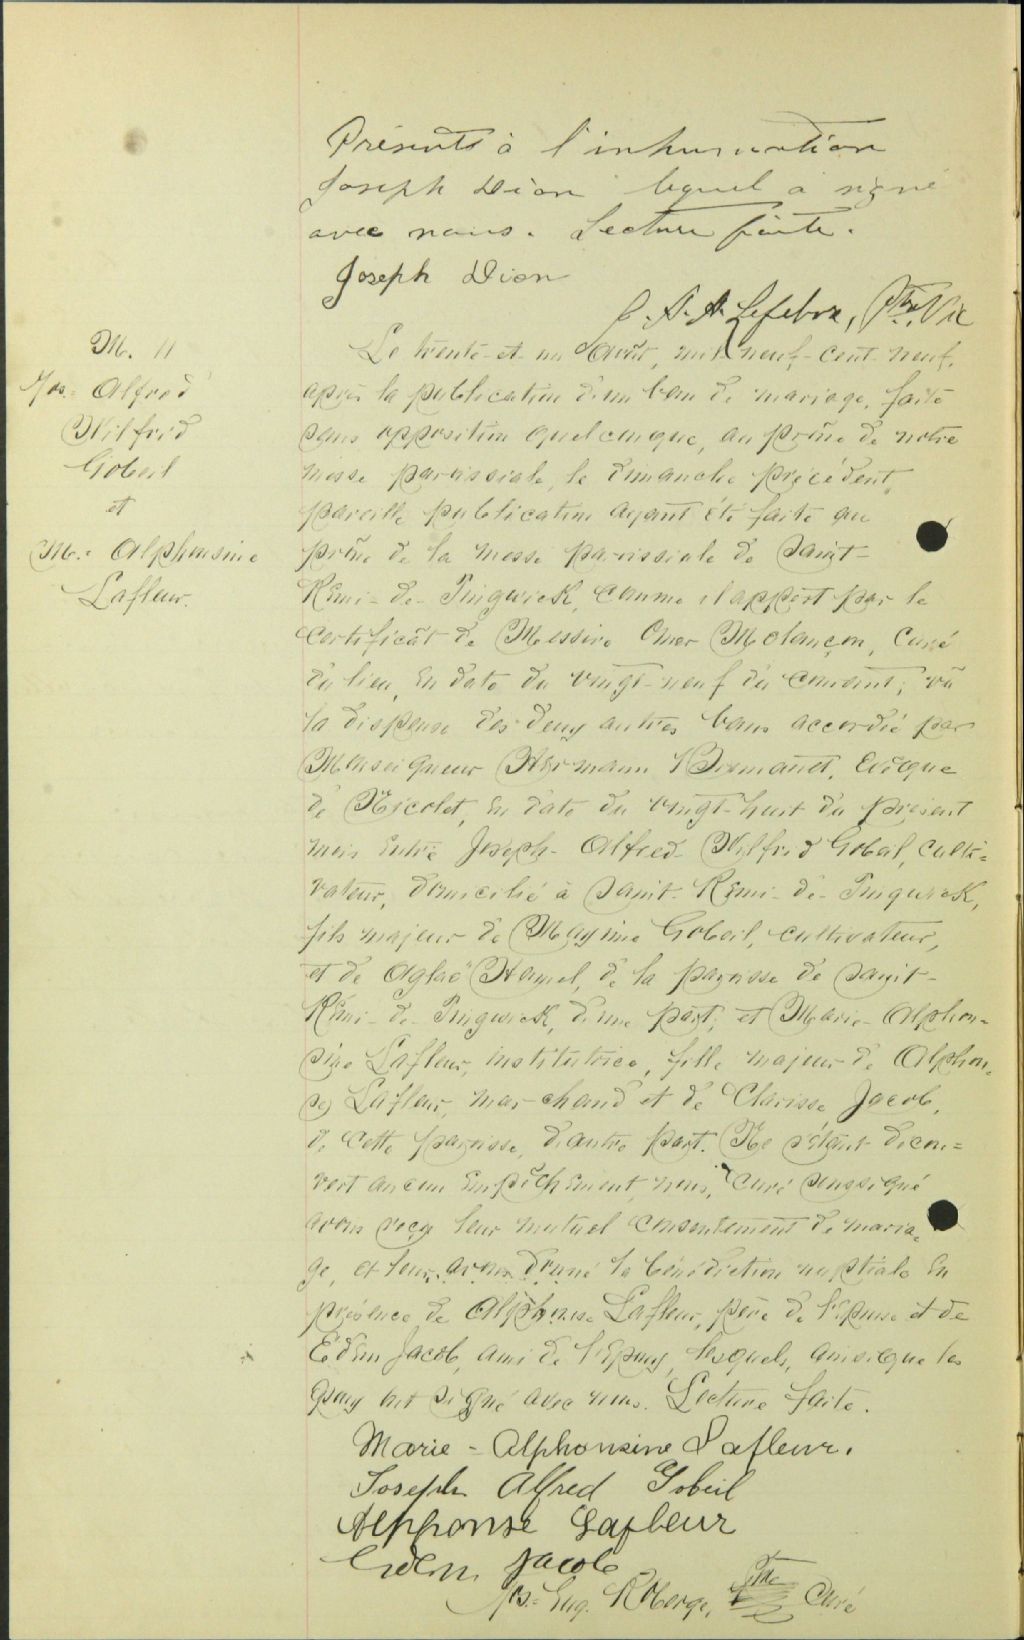 Présents à l'inhumation
Joseph Dion lequel a signé
avec nous. Lecture faite.
Joseph Dion
J. A. A. Lefebvre, Ptre, Vic
M. 11
Jos.= Alfred
Wilfrid
Gobeil
et
M.= Alphonsine
Lafleur.
Le trente-et-un Août, mil neuf-cent-neuf,
après la publication d'un ban de mariage, faite
sans opposition quelconque, au prône de notre
messe paroissiale, le dimanche précédent,
pareille publication ayant été faite au
prône de la messe paroissiale de Saint-
Rémi-de-Tingwick, comme il appert par le
certificat de Messire Omer Melançon, Curé
du lieu, en date du vingt-neuf du courant; vu
la dispense des deux autres bans accordée par
Monseigneur Hermann Brunault, Evêque
de Nicolet, en date du vingt-huit du présent
mois entre Joseph-Alfred-Wilfrid Gobeil, culti=
vateur, domicilié à Saint-Rémi-de-Tingwick,
fils majeur de Maxime Gobeil, cultivateur,
et de Aglaé Hamel, de la paroisse de Saint-
Rémi-de-Tingwick, d'une part; et Marie-Alphon=
sine Lafleur, institutrice, fille majeur de Alphon=
se Lafleur, marchand et de Clarisse Jacob,
de cette paroisse, d'autre part. Ne s'étant décou=
vert aucun empêchement, nous, Curé soussigné
avons reçu leur mutuel consentement de maria=
ge, et leur avons donné la bénédiction nuptiale en
présence de Alphonse Lafleur, père de l'épouse et de
Edem Jacob, ami de l'époux, lesquels, ainsi que les
époux ont signé avec nous. Lecture faite.
Marie-Alphonsine Lafleur.
Joseph Alfred Gobeil
Alphonse Lafleur
Edem Jacob
Jos.= Eug. Roberge, Ptre Curé